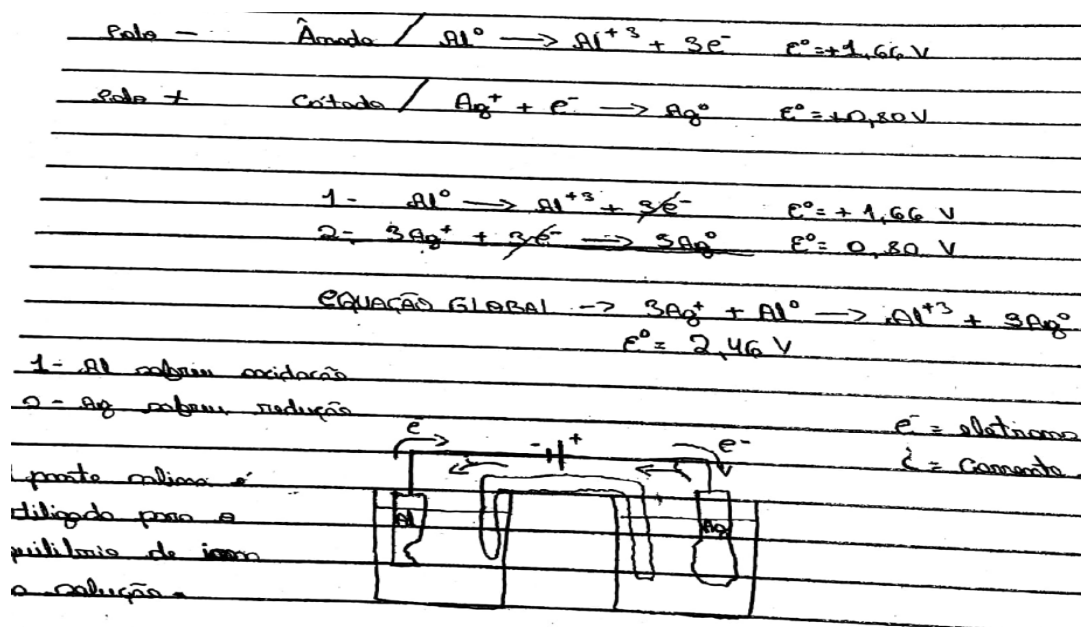 Polo - Ânodo / Al⁰ → Al⁺³ + 3e⁻ E⁰=+1,66 V
Polo + Cátodo / Ag⁺ + e⁻ → Ag⁰ E⁰=+0,80 V
1- Al⁰ → Al⁺³ + 3e⁻ E⁰= +1,66 V
2- 3Ag⁺ + 3e⁻ → 3Ag⁰ E⁰= 0,80 V
EQUAÇÃO GLOBAL → 3Ag⁺ + Al⁰ → Al⁺³ + 3Ag⁰
E⁰= 2,46 V
1- Al sofreu oxidação
2- Ag sofreu redução
e⁻ = elétrons
i = Corrente
e⁻ - + e⁻
ponte salina é
utilizada para o
equilíbrio de íons
solução.
Al
Ag